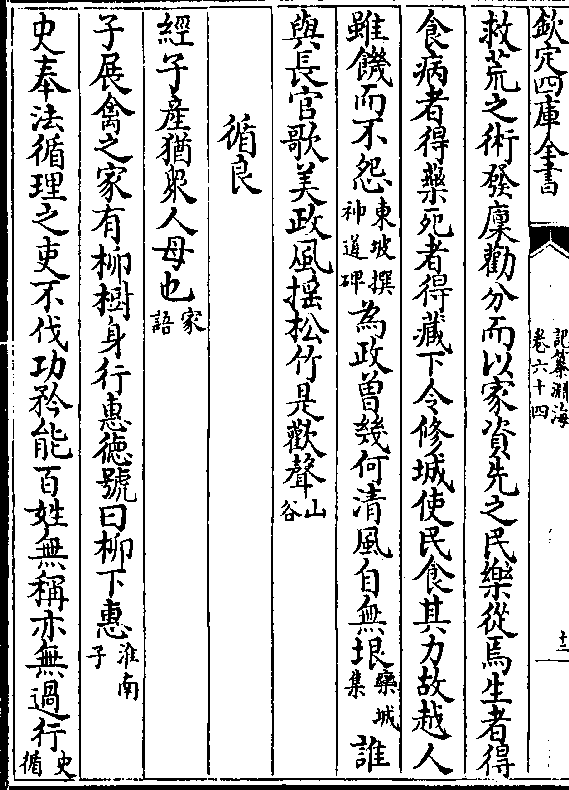 欽定四庫全書
記纂淵海
卷六十四
十三
救荒之術發廩勸分而以家資先之民樂從焉生者得
食病者得藥死者得藏下令修城使民食其力故越人
雖饑而不怨東坡撰神道碑為政曾幾何清風自無垠欒城集誰
與長官歌美政風摇松竹是歡聲山谷
循良
經子產猶衆人母也家語
子展禽之家有柳樹身行惠德號曰柳下惠淮南子
史奉法循理之吏不伐功矜能百姓無稱亦無過行史循